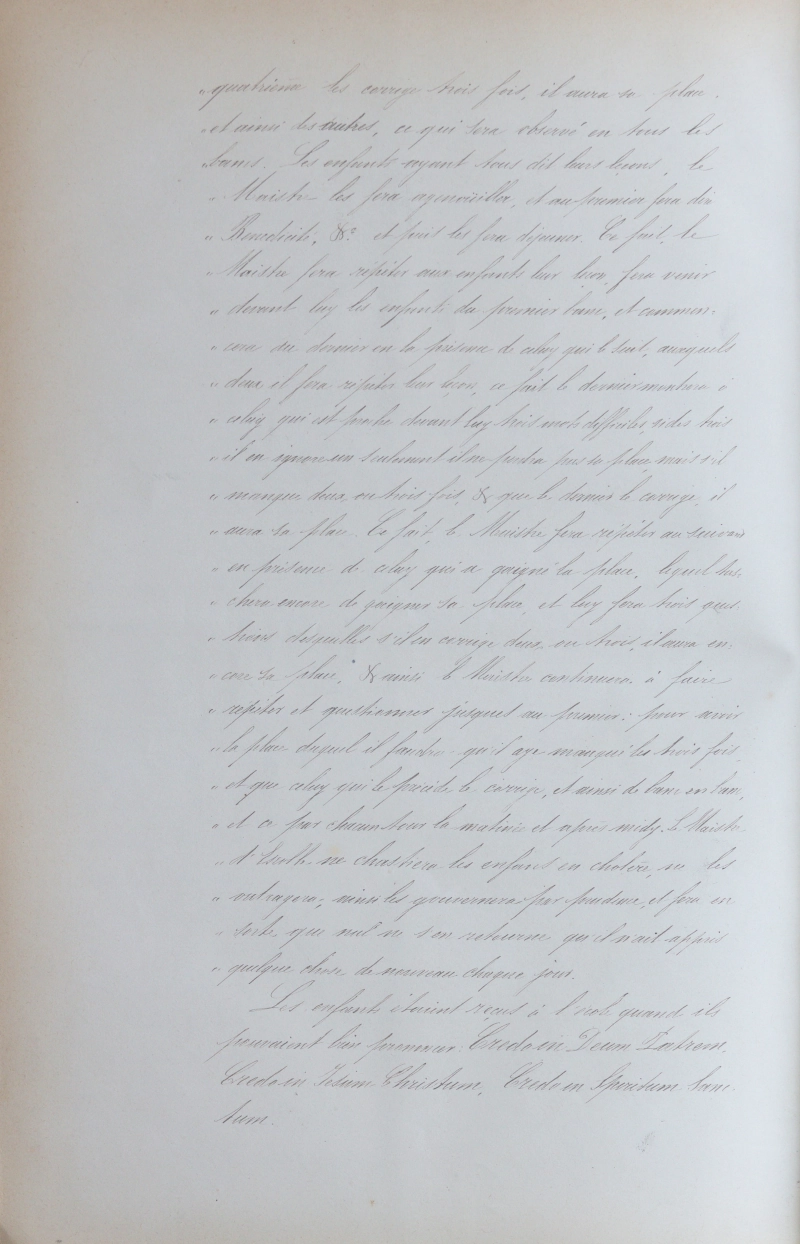 „ quatriême les corrige trois fois, il aura sa place.
„ et ainsi des autres, ce qui sera observé en tous les
„ bancs. Les enfants ayant tous dit leurs leçons, le
„ Maistre les fera agenoüiller, et au premier fera dire
„ Benedicité, &c. et puis les fera déjeuner. Ce fait, le
„ Maistre fera répéter aux enfants leur leçon, fera venir
„ devant luy les enfants du premier banc, et commen-
„ cera au dernier en la présence de celuy qui le suit, auxquels
„ deux il fera répéter leur leçon, ce fait le dernier montrera à
„ celuy qui est proche devant luy trois mots difficiles, si des trois
„ il en ignore un seulement il ne perdra pas sa place, mais s'il
„ manque deux ou trois fois, & que le dernier le corrige, il
„ aura sa place. Ce fait, le Maistre fera répéter au suivant
„ en présence de celuy qui a gaigné la place, lequel tas-
„ chera encore de gaigner sa place, et luy fera trois ques-
„ tions desquelles s'il en corrige deux, ou trois, il aura en-
„ core sa place, & ainsi le Maistre continuera à faire
„ répéter et questionner jusques au premier: pour avoir
„ la place duquel il faudra qu'il aye manqué les trois fois,
„ et que celuy qui le précède le corrige, et ainsi de banc en banc,
„ et ce par chacun tour la matinée et après midy. Le Maistre
„ d'Escolle ne chastiera les enfans en cholère, ne les
„ outragera, ainsi les gouvernera par prudence, et fera en
„ sorte que nul ne s'en retourne qu'il n'ait appris
„ quelque chose de nouveau chaque jour.
Les enfants étaient reçus à l'école quand ils
pouvaient bien prononcer: Credo in Deum Patrem,
Credo in Jesum Christum, Credo in Spiritum Sanc-
tum.